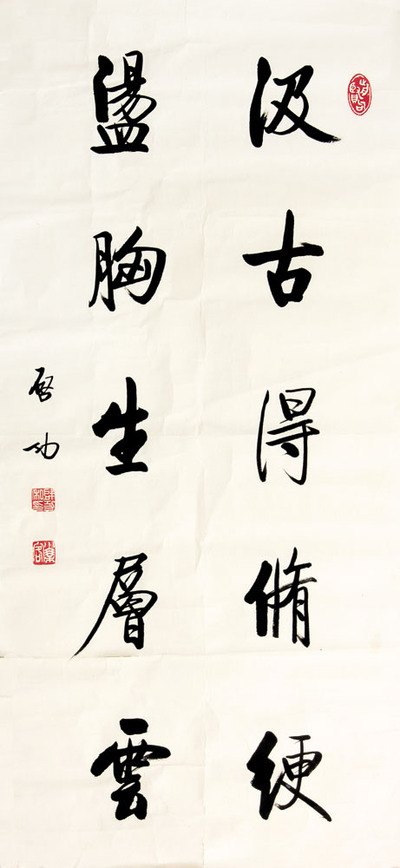 汲古得脩绠
盪胸生層雲
启功